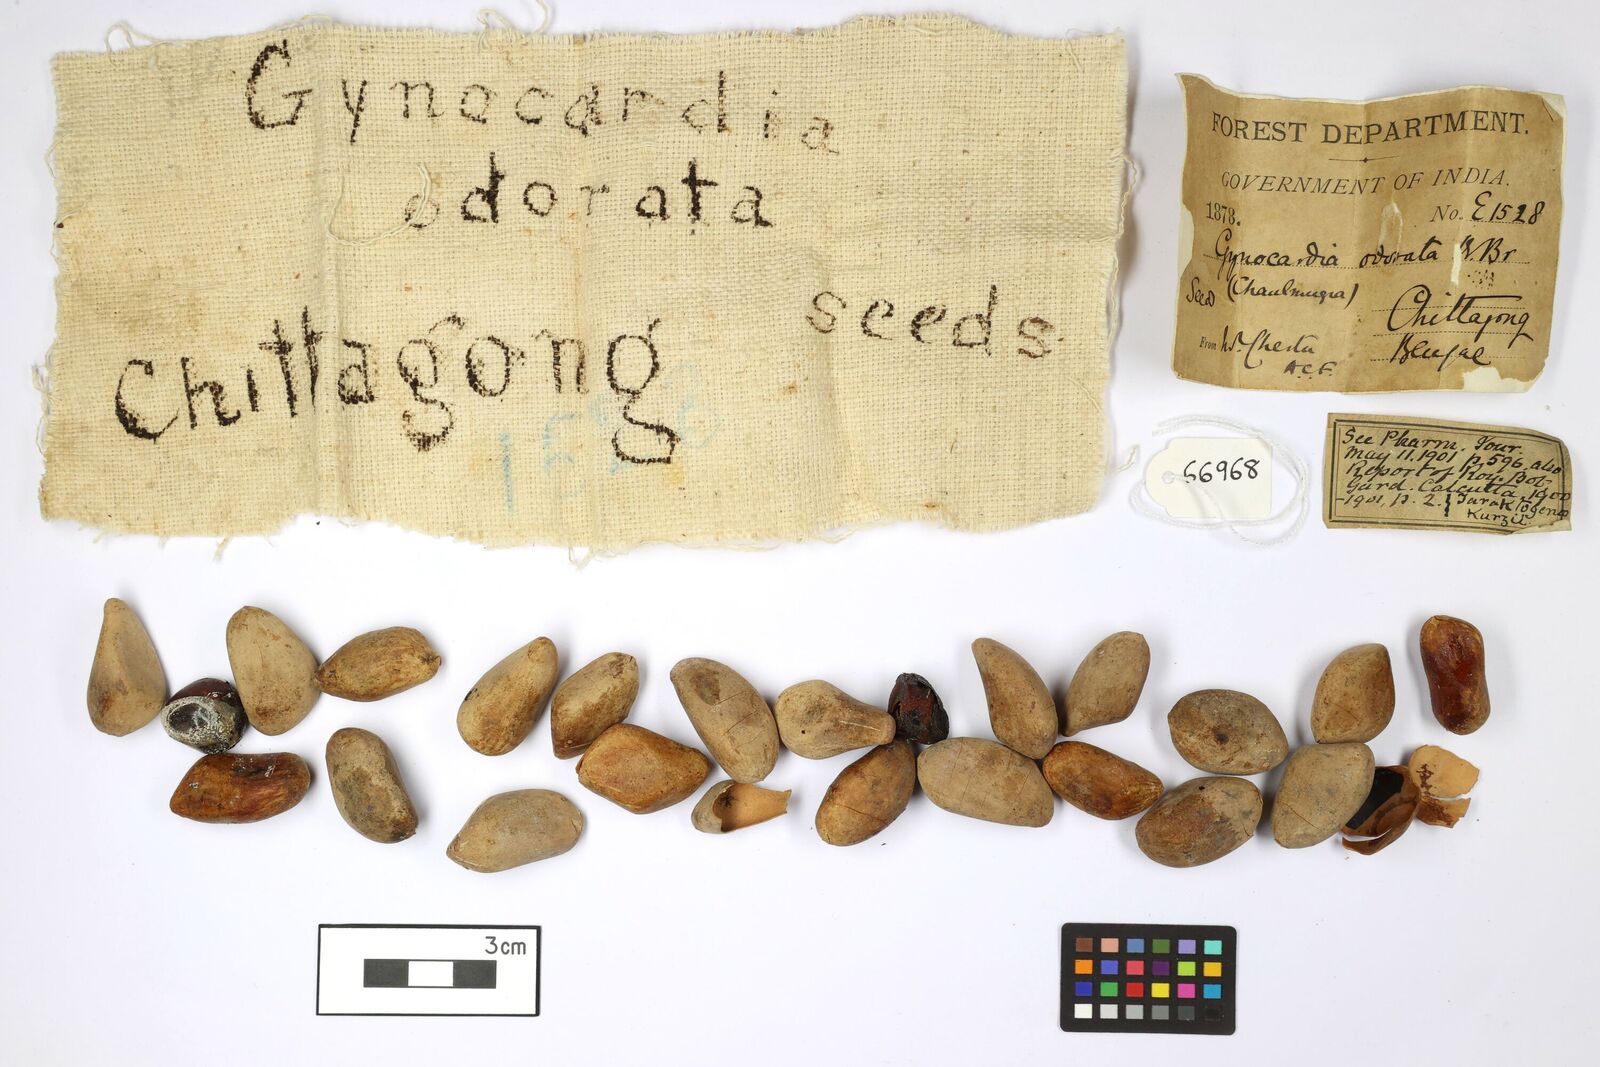 Gynocardia
odorata
seeds
Chittagong
FOREST DEPARTMENT.
GOVERNMENT OF INDIA.
1878.
No. E1528
Gynocardia odorata R.Br
Seed (Chaulmugra)
Chittagong
Bengal
From
A.C.F.
66968
See Pharm. Jour.
May 11.1901 p.596, also
Report of Roy. Bot-
Gard. Calcutta, 1900
-1901, p. 2. Taraktogenos
Kurzii
3cm